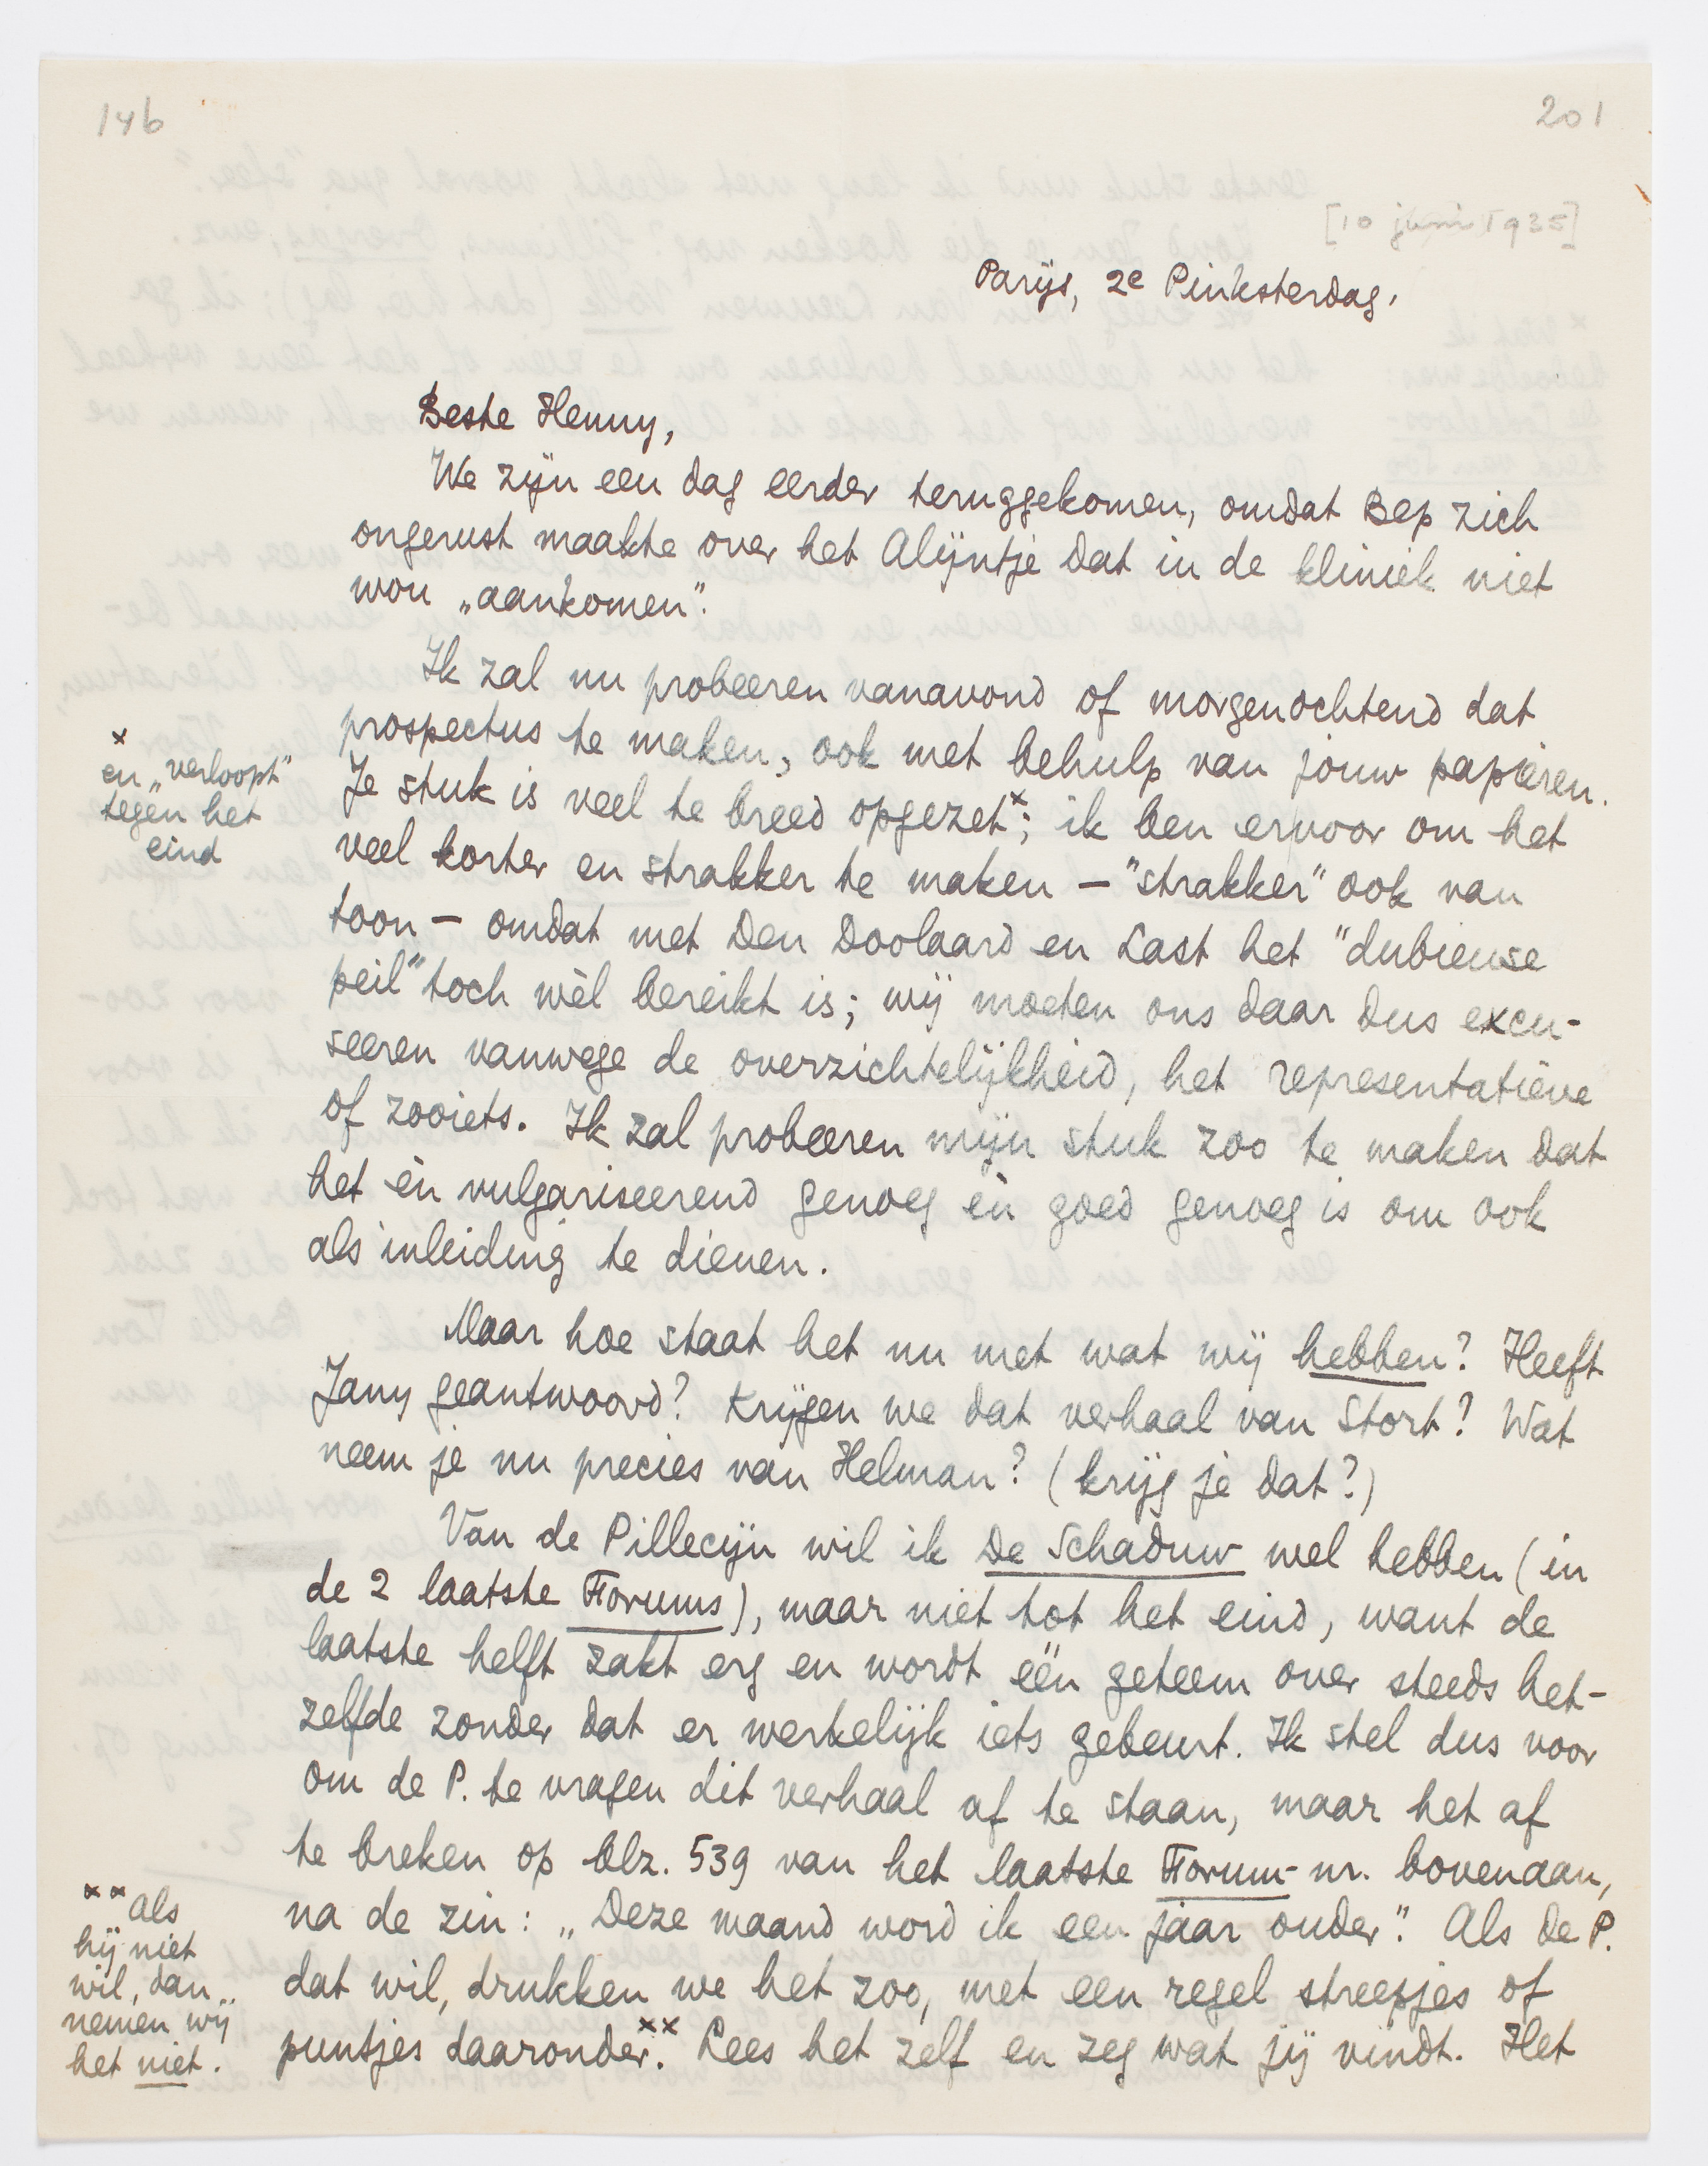 146
201
[10 juni 1935]
Parijs, 2e Pinksterdag.
Beste Henny,
We zijn een dag eerder teruggekomen, omdat Bep zich
ongerust maakte over het Alijntje dat in de kliniek niet
wou „aankomen".
Ik zal nu probeeren vanavond of morgenochtend dat
prospectus te maken, ook met behulp van jouw papieren.
Je stuk is veel te breed opgezet x; ik ben ervoor om het
veel korter en strakker te maken — "strakker" ook van
toon — omdat met Den Doolaard en Last het "dubieuse
peil" toch wèl bereikt is; wij moeten ons daar dus excu-
seeren vanwege de overzichtelijkheid, het representatieve
of zooiets. Ik zal probeeren mijn stuk zoo te maken dat
het èn vulgariseerend genoeg èn goed genoeg is om ook
als inleiding te dienen.
x
en „verloopt"
tegen het
eind
Maar hoe staat het nu met wat wij hebben? Heeft
Jany geantwoord? Krijgen we dat verhaal van Stort? Wat
neem je nu precies van Helman? (krijg je dat?)
Van de Pillecijn wil ik De Schaduw wel hebben (in
de 2 laatste Forums), maar niet tot het eind, want de
laatste helft zakt erg en wordt één geteem over steeds het-
zelfde zonder dat er werkelijk iets gebeurt. Ik stel dus voor
om de P. te vragen dit verhaal af te staan, maar het af
te breken op blz. 539 van het laatste Forum-nr. bovenaan,
na de zin: „Deze maand word ik een jaar ouder". Als de P.
dat wil, drukken we het zoo, met een regel streepjes of
puntjes daaronder. xx Lees het zelf en zeg wat jij vindt. Het
xx Als
hij niet
wil, dan
nemen wij
het niet.